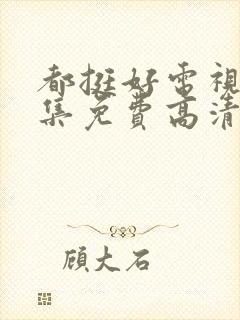 都挺好電視
集免費高清
顾大石